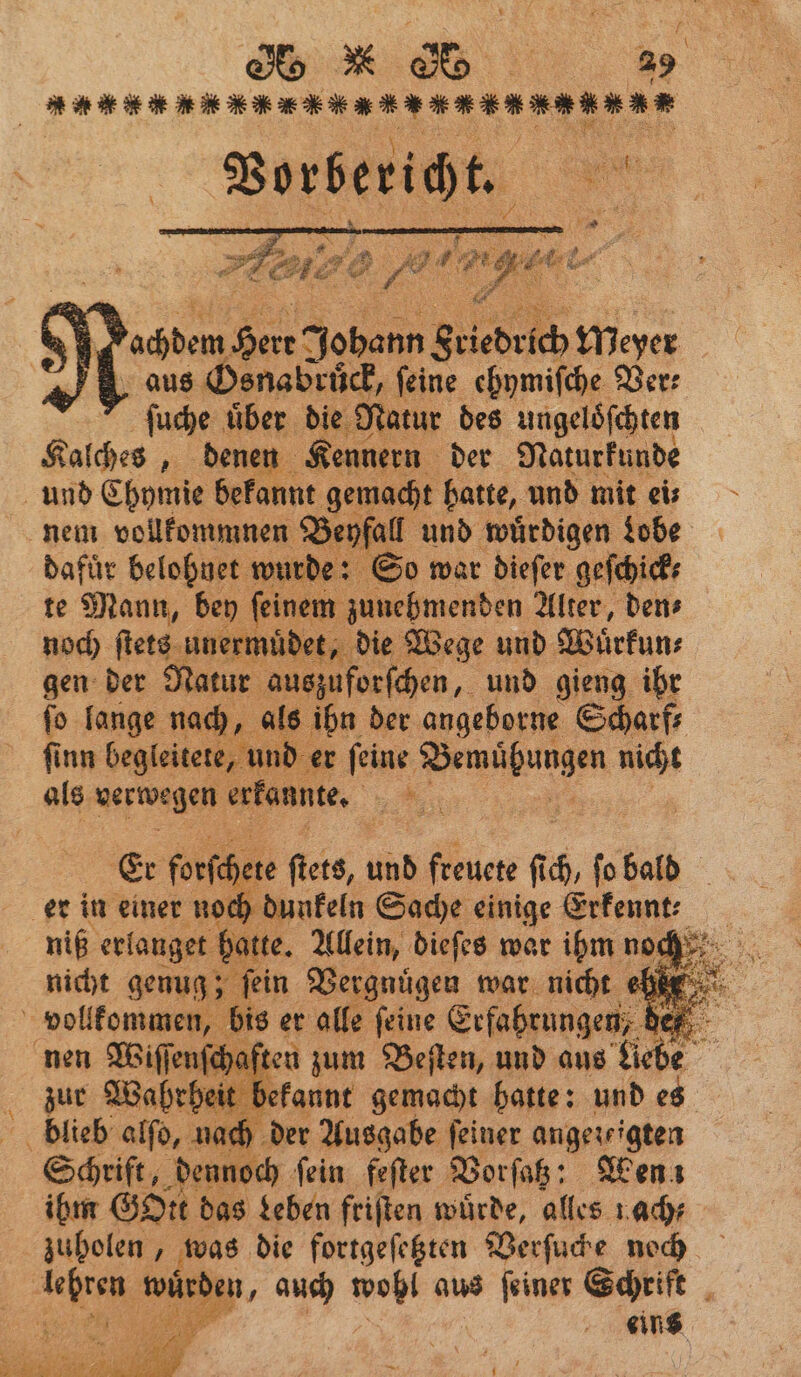 29
Vorbericht.
Acido pingui
Nachdem Herr Johann Friedrich Meyer
aus Osnabruͤck, ſeine chymiſche Ver⸗
ſuche uͤber die Natur des ungeloͤſchten
Kalches, denen Kennern der Naturkunde
und Chymie bekannt gemacht hatte, und mit ei⸗
nem vollkommnen Beyfall und wuͤrdigen Lobe
dafuͤr belohnet wurde: So war dieſer geſchick⸗
te Mann, bey ſeinem zunehmenden Alter, den⸗
noch ſtets unermuͤdet, die Wege und Wuͤrkun⸗
gen der Natur auszuforſchen, und gieng ihr
ſo lange nach, als ihn der angeborne Scharf⸗
ſinn begleitete, und er ſeine Bemuͤhungen nicht
als verwegen erkannte.
Er forſchete ſtets, und freuete ſich, ſo bald
er in einer noch dunkeln Sache einige Erkennt⸗
niß erlanget hatte. Allein, dieſes war ihm noch
nicht genug; ſein Vergnuͤgen war nicht eher
vollkommen, bis er alle ſeine Erfahrungen, de⸗
nen Wiſſenſchaften zum Beſten, und aus Liebe
zur Wahrheit bekannt gemacht hatte: und es
blieb alſo, nach der Ausgabe ſeiner angezeigten
Schrift, dennoch ſein feſter Vorſatz: Wenn
ihm GOtt das Leben friſten wuͤrde, alles nach⸗
zuholen, was die fortgeſetzten Verſuche noch
lehren wuͤrden, auch wohl aus ſeiner Schrift
eins